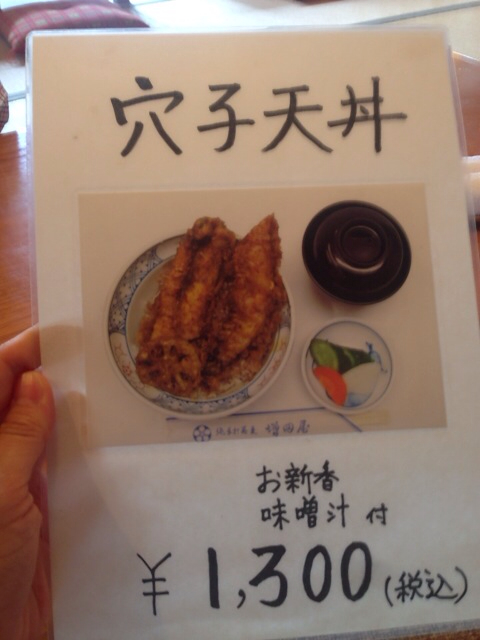 穴子天丼
増田屋
お新香
味噌汁 付
¥1,300(税込)